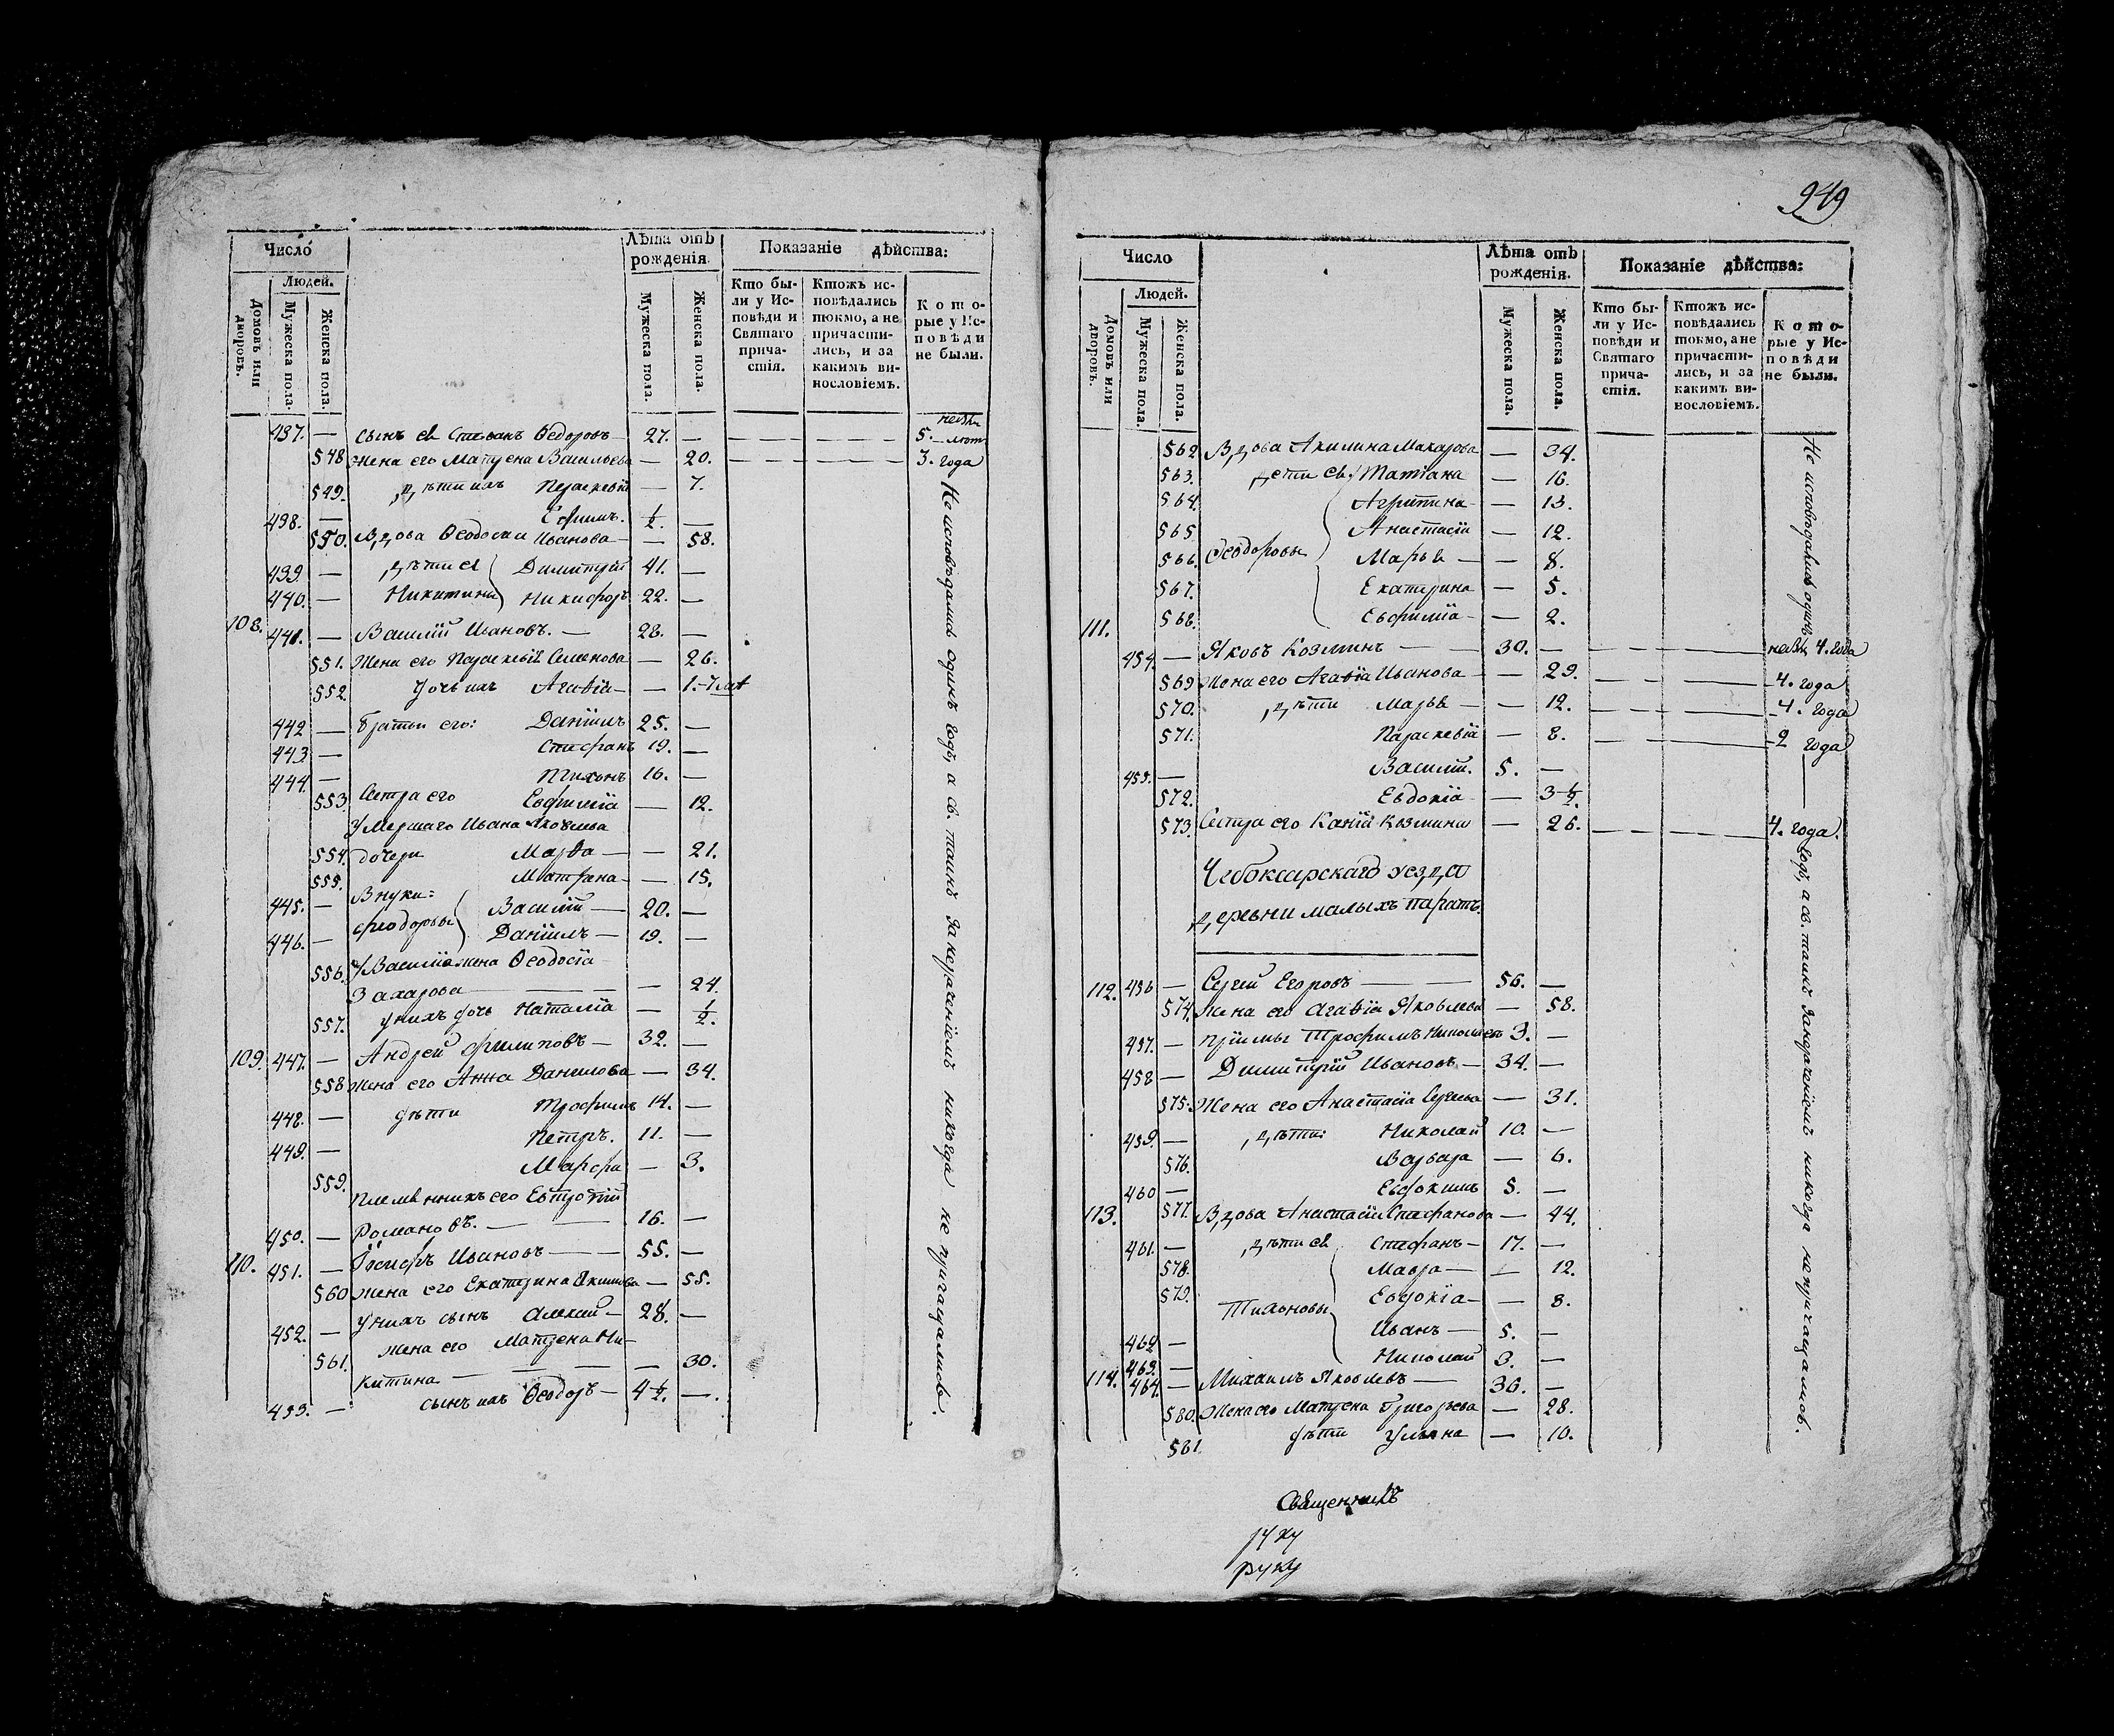 949
Число
Людей.
Домовъ или дворовъ.
Мужеска пола.
Женска пола.
Лѣта отъ рожденія.
Мужеска пола.
Женска пола.
Показаніе дѣйства:
Кто бы-
ли у Ис-
повѣди и
Святаго
прича-
стія.
Ктожъ ис-
повѣдались
токмо, а не
причасти-
лись, и за
какимъ ви-
нословіемъ.
Кото-
рые у Ис-
повѣди
не были.
437. — сынъ ея Степанъ Ѳедоровъ — 27. — 5. лѣт
548 Жена его Матрена Васильева — 20. 3. года
549. дѣти ихъ Параскевія — 7.
438. — Ефимъ. ½. —
550. Вдова Ѳеодосия Иванова — 58.
439. — дѣти ея Димитрій 41. —
440. — Никитины Никифоръ 22. —
108. 441. — Василій Ивановъ. — 28. —
551. Жена его Параскевія Семенова — 26.
552. дочь ихъ Агафія — 1.
442 — братья его: Даніилъ 25. —
443 — Стефанъ 19. —
444. — Тихонъ 16. —
553 Сестра его Евфимія — 12.
Умершаго Ивана Яковлева
554. дочери Марфа — 21.
555. Матрена — 15.
445. — Внуки: Василій — 20. —
446. — Феодоровы Даніилъ — 19. —
556. У Василія жена Ѳеодосія
Захарова — 24
557. у нихъ дочь Наталія — ½.
109. 447. — Андрей Филиповъ — 32. —
558 Жена его Анна Данилова — 34.
448. — дѣти Трофимъ 14. —
449. — Петръ. 11. —
559. Марфа — 3.
племянникъ его Евтропій
450. — Романовъ. — 16. —
110. 451. — Іосифъ Ивановъ — 55. —
560 Жена его Екатерина Якимова — 55.
452. — у нихъ сынъ Алексій — 28. —
561. жена его Матрена Ни-
китина — 30.
453. — сынъ ихъ Ѳеодоръ — 4½. —
Не исповѣдались одинъ годъ, а св. таинъ за нераченіемъ никогда не причащались.
Число
Людей.
Домовъ или дворовъ.
Мужеска пола
Женска пола.
Лѣта отъ рожденія.
Мужеска пола.
Женска пола.
Показаніе дѣйства:
Кто бы-
ли у Ис-
повѣди и
Святаго
прича-
стія.
Ктожъ ис-
повѣдались
токмо, а не
причасти-
лись, и за
какимъ ви-
нословіемъ.
Кото-
рые у Ис-
повѣди
не были.
562 Вдова Акилина Макарова — 34.
563. дети ея Татіана — 16.
564. Агрипина — 13.
565 Анастасія — 12.
566. Ѳеодоровы Марья — 8.
567. Екатерина — 5.
568. Евфимія — 2.
111. 454. — Яковъ Козминъ — 30. — 4. года
569 Жена его Агафія Иванова — 29. 4. года
570. дѣти Марья — 12. 4. года
571. Параскевія — 8. 2 года
455. — Василій. 5. —
572. Евдокія — 3½.
573. Сестра его Ксенія Козмина — 26. 4. года.
Чебоксарскаго уезда
деревни малыхъ Паратъ.
112. 456 — Сергей Егоровъ — 56. —
574. Жена его Агафія Яковлева — 58.
457. — пріимы Трофимъ Николаевъ 3. —
458 — Димитрій Ивановъ — 34. —
575. Жена его Анастасіа Сергеева — 31.
459. — дѣти: Николай 10. —
576. Варвара — 6.
460 — Евдокимъ 5. —
113. 577. Вдова Анастасія Стефанова — 44.
461. — дѣти ея Стефанъ — 17. —
578. Мавра — 12.
579. Тихоновы Евдокіа — 8.
462 — Иванъ — 5. —
463. — Николай 3. —
114. 464. — Михаилъ Яковлевъ — 36. —
580. Жена его Матрена Григорьева — 28.
581 дѣти Ульяна — 10.
Не исповѣдались одинъ годъ, а св. таинъ за нераченіемъ никогда не причащались.
Священникъ
руку
руку